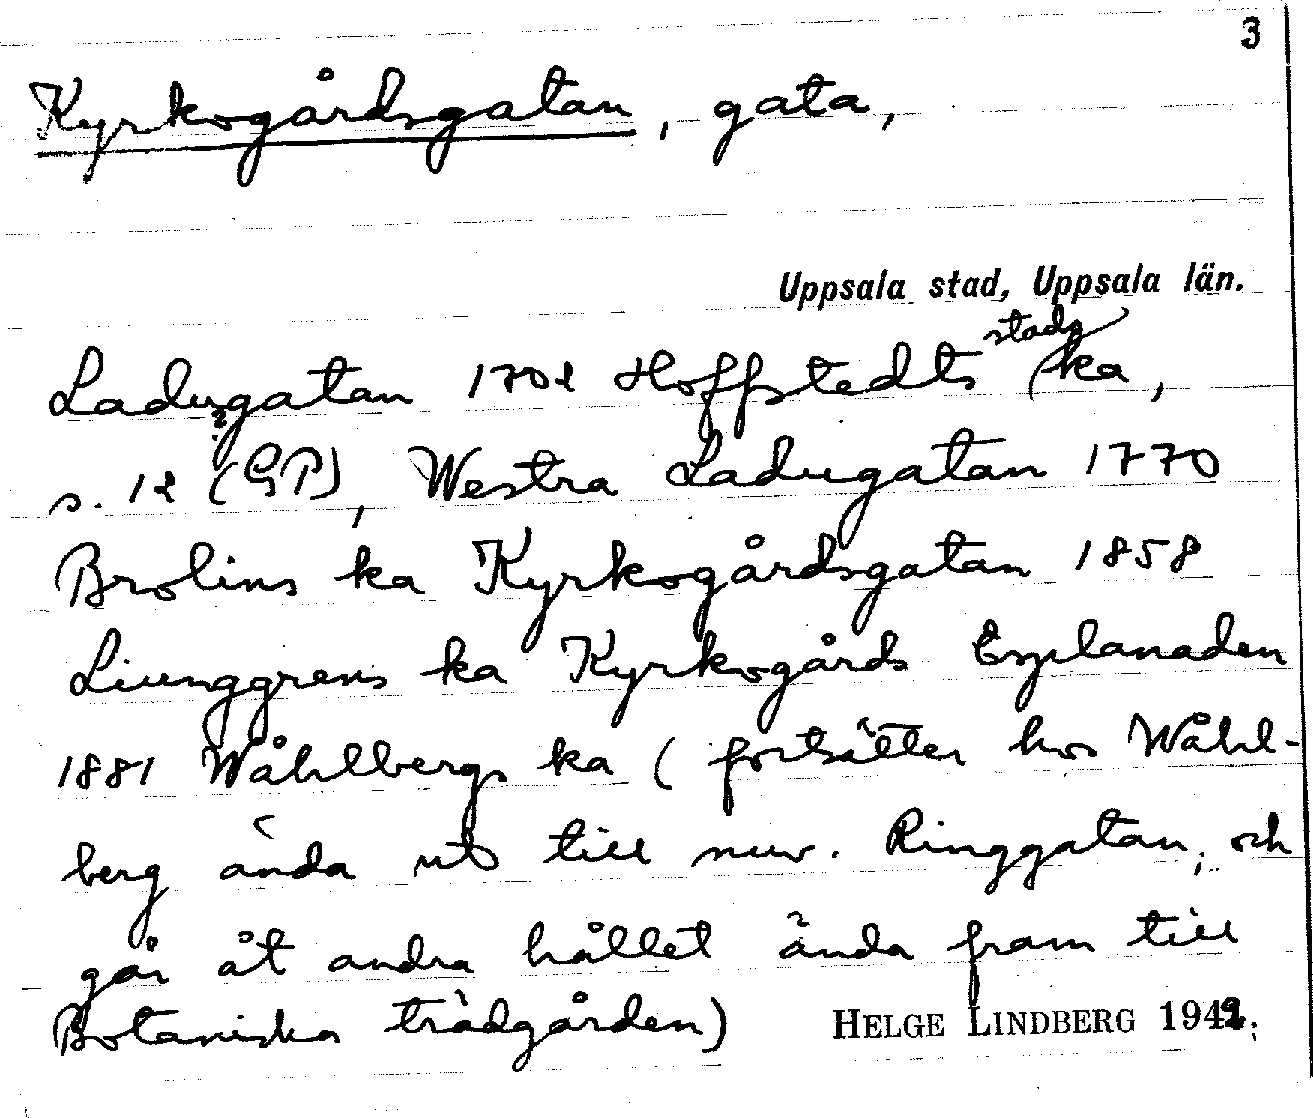 3
Kyrkogårdsgatan, gata,
Uppsala stad, Uppsala län.
stads
Ladugatan 1702 Hoffstedts ka,
s. 12 (GP), Westra Ladugatan 1770
Brolins ka Kyrkogårdsgatan 1858
Liunggrens ka Kyrkogårds Esplanaden
1881 Wåhlbergs ka (fortsätter hos Wåhl-
berg ända ut till nuv. Ringgatan, och
går åt andra hållet ända fram till
Botaniska trädgården)
HELGE LINDBERG 1942.